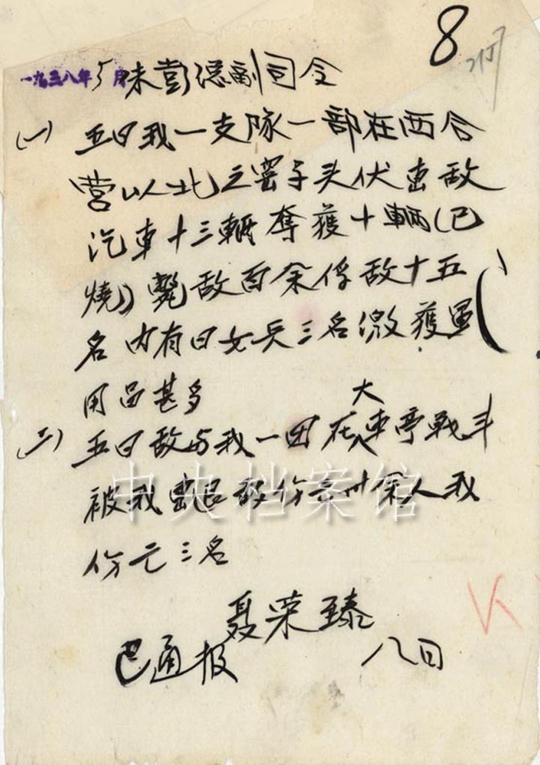 8
一九三八年5月
朱彭总副司令
(一) 五日我一支隊一部在西合
营以北之罂子头伏击敌
汽車十三輛奪獲十輛(已
燒)斃敌百余俘敌十五
名内有日女兵三名缴獲軍
用品甚多
(二) 五日敌与我一团在大車亭戰斗
被我擊退敌伤亡卅余人我
伤亡三名
聂荣臻
已通报 八日
中央档案馆